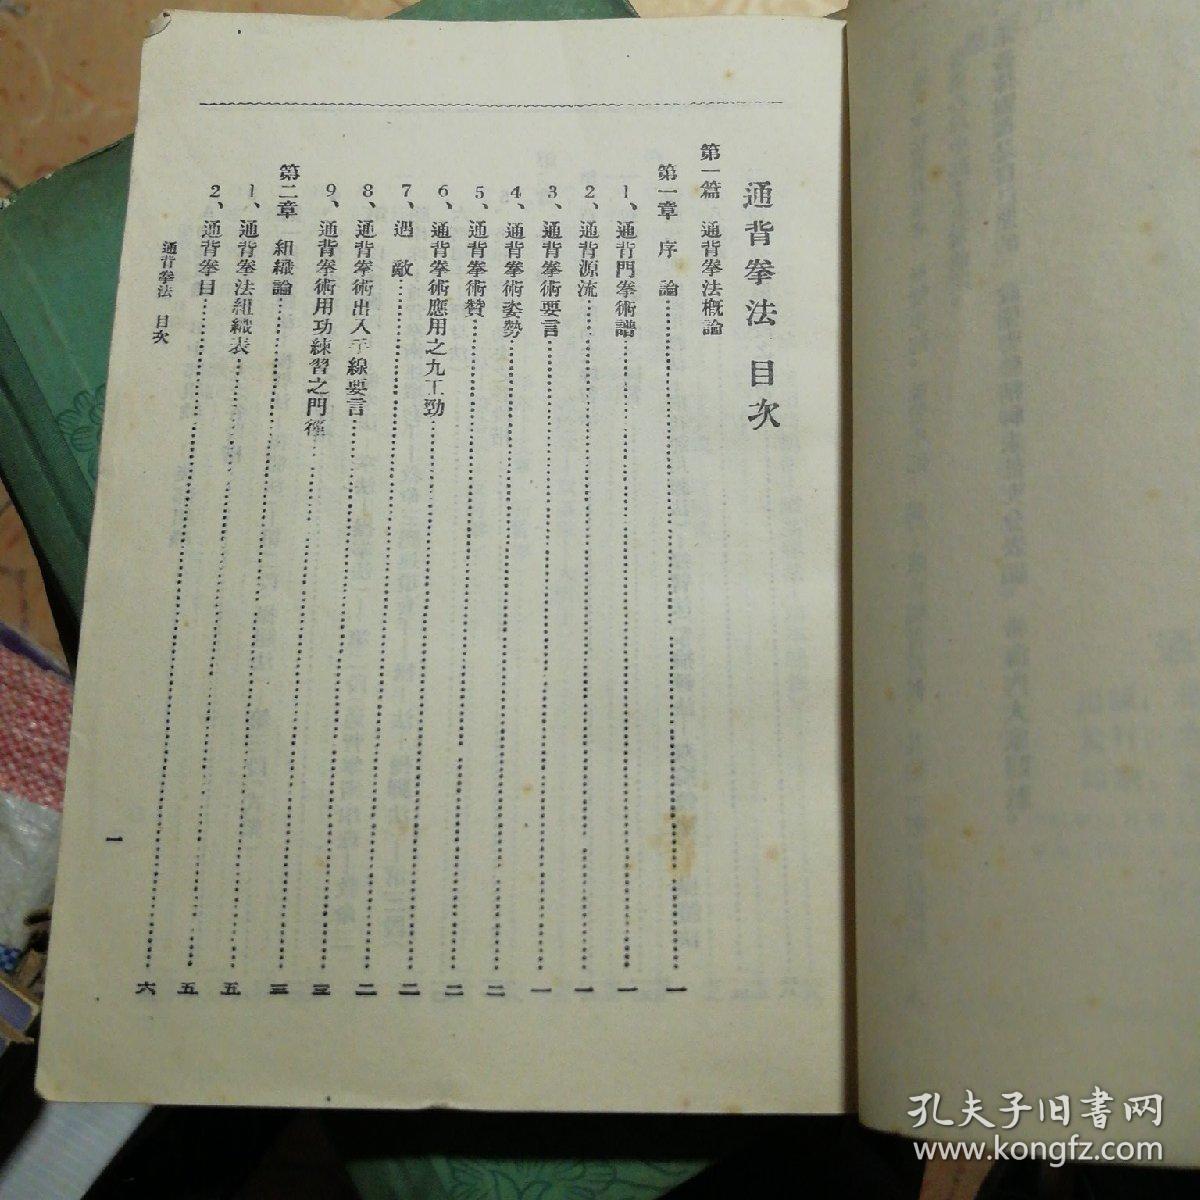 通背拳法 目次
第一篇 通背拳法概論
第一章 序論……一
1、通背門拳術譜……一
2、通背源流……一
3、通背拳術要言……一
4、通背拳術姿勢……二
5、通背拳術贊……二
6、通背拳術應用之九工勁……二
7、遇敵……二
8、通背拳術出入手線要言……三
9、通背拳術用功練習之門徑……三
第二章 組織論……五
1、通背拳法組織表……五
2、通背拳目……六
通背拳法 目次
一
孔夫子旧書网
www.kongfz.com